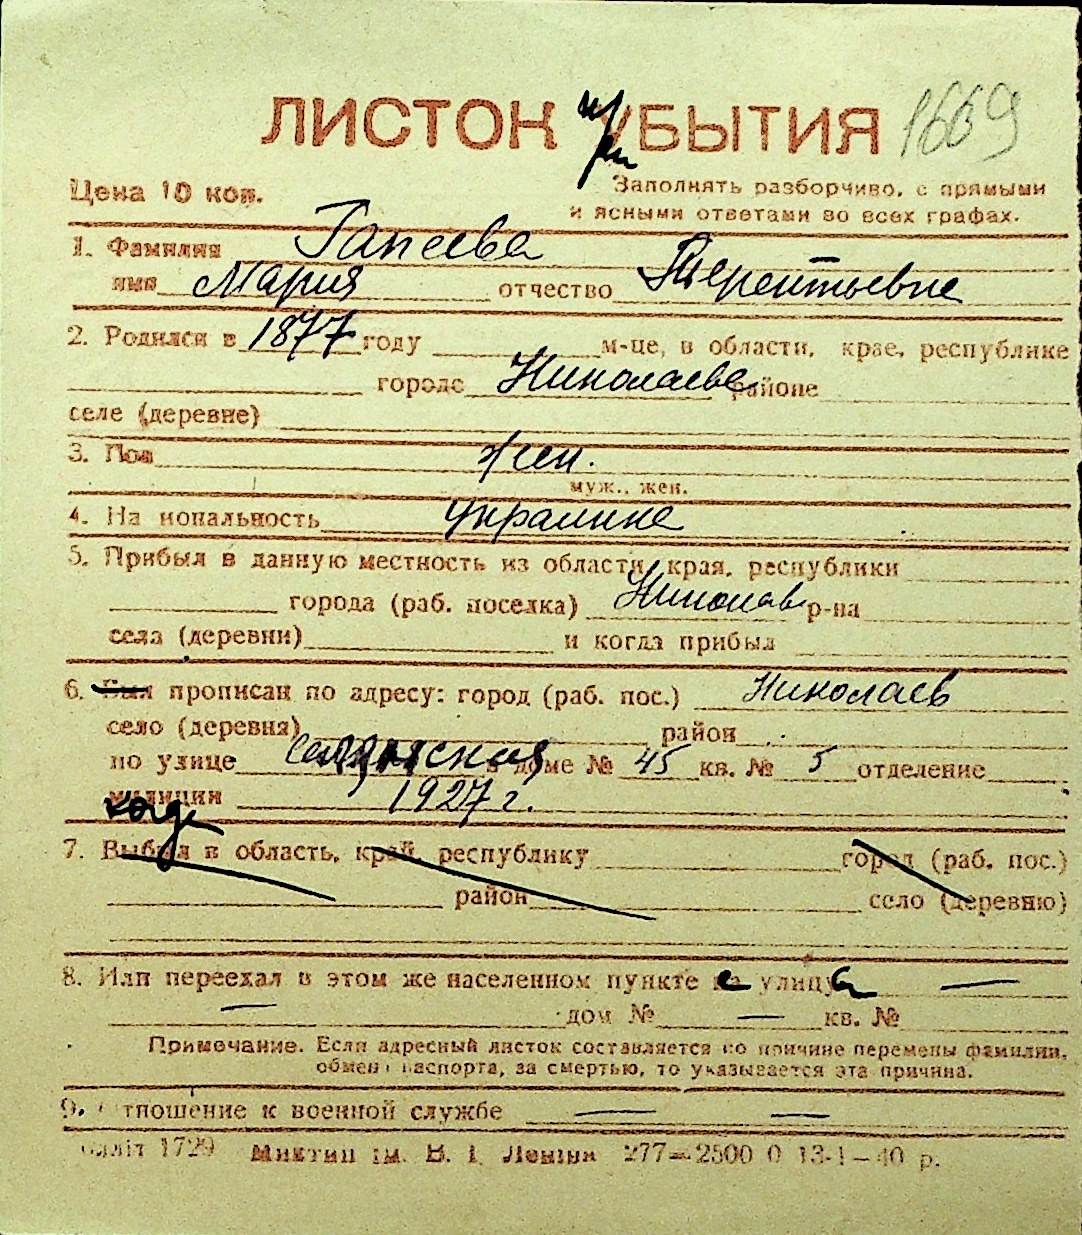 ЛИСТОК УБЫТИЯ 1669
при
Цена 10 коп. Заполнять разборчиво, с прямыми
и ясными ответами во всех графах.
1. Фамилия Гапеева
имя Мария отчество Терентьевне
2. Родился в 1877 году м-це, в области, крае, республике
городе Николаеве районе
селе (деревне)
3. Пол жен.
муж., жен.
4. На иональность украинке
5. Прибыл в данную местность из области, края, республики
города (раб. поселка) Николаев р-на
села (деревни) и когда прибыл
6. Был прописан по адресу: город (раб. пос.) Николаев
село (деревня) район
по улице в доме № 45 кв. № 5 отделение
милиции 1927 г.
когда
7. Выбыл в область, край, республику город (раб. пос.)
район село (деревню)
8. Или переехал в этом же населенном пункте с улицы —
— дом № — кв. №
Примечание. Если адресный листок составляется по причине перемены фамилии,
обмена паспорта, за смертью, то указывается эта причина.
9. Отношение к военной службе — —
1729 Миктип ім. В. І. Леніна 277—2500 0 13-1—40 р.